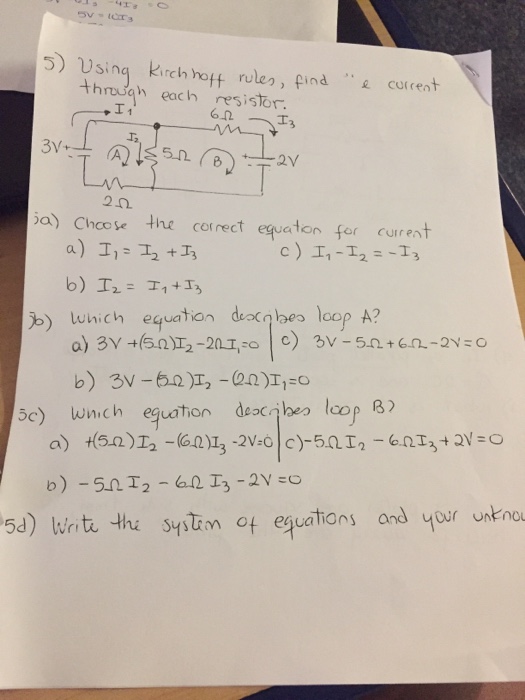 -4I₃ = 0
5V = 10I₃
5) Using Kirchhoff rules, find e current
through each resistor.
I₁
6Ω
I₃
I₂
3V +
A
5Ω
B
+
2V
2Ω
5a) Choose the correct equation for current
a) I₁ = I₂ + I₃ c) I₁ - I₂ = -I₃
b) I₂ = I₁ + I₃
5b) Which equation describes loop A?
a) 3V + (5Ω)I₂ - 2ΩI₁ = 0 c) 3V - 5Ω + 6Ω - 2V = 0
b) 3V - (5Ω)I₂ - (2Ω)I₁ = 0
5c) Which equation describes loop B?
a) +(5Ω)I₂ - (6Ω)I₃ - 2V = 0 c) -5ΩI₂ - 6ΩI₃ + 2V = 0
b) -5ΩI₂ - 6ΩI₃ - 2V = 0
5d) Write the system of equations and your unknow